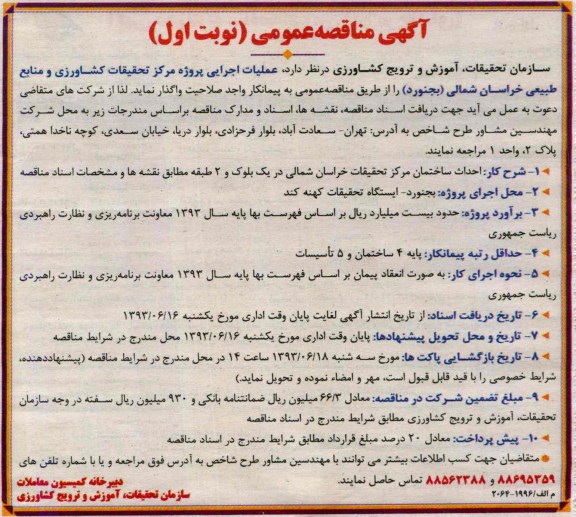 آگهی مناقصه‌عمومی (نوبت اول)
سازمان تحقیقات، آموزش و ترویج کشاورزی درنظر دارد، عملیات اجرایی پروژه مرکز تحقیقات کشاورزی و منابع
طبیعی خراسان شمالی (بجنورد) را از طریق مناقصه‌عمومی به پیمانکار واجد صلاحیت واگذار نماید. لذا از شرکت های متقاضی
دعوت به عمل می آید جهت دریافت اسناد مناقصه، نقشه ها، اسناد و مدارک مناقصه براساس مندرجات زیر به محل شرکت
مهندسین مشاور طرح شاخص به آدرس: تهران- سعادت آباد، بلوار فرحزادی، بلوار دریا، خیابان سعدی، کوچه ناخدا همتی،
پلاک ۲، واحد ۱ مراجعه نمایند.
۱- شرح کار: احداث ساختمان مرکز تحقیقات خراسان شمالی در یک بلوک و ۲ طبقه مطابق نقشه ها و مشخصات اسناد مناقصه
۲- محل اجرای پروژه: بجنورد- ایستگاه تحقیقات کهنه کند
۳- برآورد پروژه: حدود بیست میلیارد ریال بر اساس فهرست بها پایه سال ۱۳۹۳ معاونت برنامه‌ریزی و نظارت راهبردی
ریاست جمهوری
۴- حداقل رتبه پیمانکار: پایه ۴ ساختمان و ۵ تأسیسات
۵- نحوه اجرای کار: به صورت انعقاد پیمان بر اساس فهرست بها پایه سال ۱۳۹۳ معاونت برنامه‌ریزی و نظارت راهبردی
ریاست جمهوری
۶- تاریخ دریافت اسناد: از تاریخ انتشار آگهی لغایت پایان وقت اداری مورخ یکشنبه ۱۳۹۳/۰۶/۱۶
۷- تاریخ و محل تحویل پیشنهادها: پایان وقت اداری مورخ یکشنبه ۱۳۹۳/۰۶/۱۶ محل مندرج در شرایط مناقصه
۸- تاریخ بازگشایی پاکت ها: مورخ سه شنبه ۱۳۹۳/۰۶/۱۸ ساعت ۱۴ در محل مندرج در شرایط مناقصه (پیشنهاددهنده،
شرایط خصوصی را با قید قابل قبول است، مهر و امضاء نموده و تحویل نماید.)
۹- مبلغ تضمین شرکت در مناقصه: معادل ۶۶/۳ میلیون ریال ضمانتنامه بانکی و ۹۳۰ میلیون ریال سفته در وجه سازمان
تحقیقات، آموزش و ترویج کشاورزی مطابق شرایط مندرج در اسناد مناقصه
۱۰- پیش پرداخت: معادل ۲۰ درصد مبلغ قرارداد مطابق شرایط مندرج در اسناد مناقصه
متقاضیان جهت کسب اطلاعات بیشتر می توانند با مهندسین مشاور طرح شاخص به آدرس فوق مراجعه و یا با شماره تلفن های
۸۸۶۹۵۳۵۹ و ۸۸۵۶۲۳۸۸ تماس حاصل نمایند.
دبیرخانه کمیسیون معاملات
سازمان تحقیقات، آموزش و ترویج کشاورزی
م الف/۱۹۹۶-۲۰۶۴